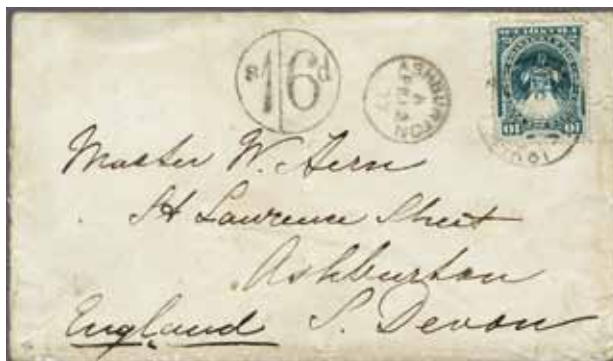 s 1 6 d
ASHBURTON
A
10 10
Master W. Hern
St Lawrence Street
Ashburton
England S. Devon